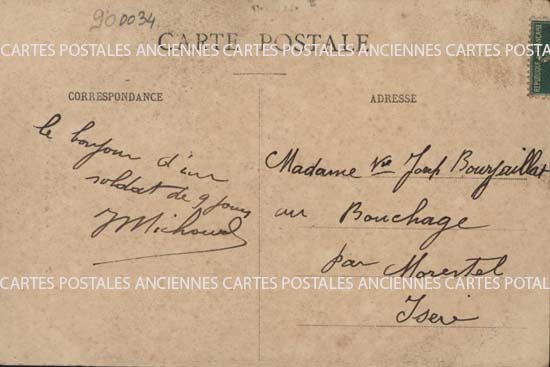 900034
CARTE POSTALE
CARTES POSTALES ANCIENNES CARTES POSTALES ANCIENNES CARTES POSTALES ANCIENNES
CORRESPONDANCE
le bonjour d'un
soldat de 9 jours
JMichoud
ADRESSE
Madame Vve Joseph Bourjaillat
au Bouchage
par Morestel
Isère
REPUBLIQUE FRANÇAISE
CARTES POSTALES ANCIENNES CARTES POSTALES ANCIENNES CARTES POTALE